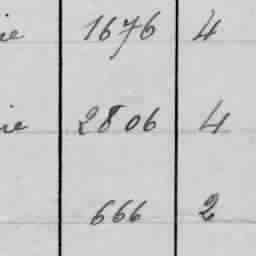 ie 1676 4
ie 2806 4
666 2